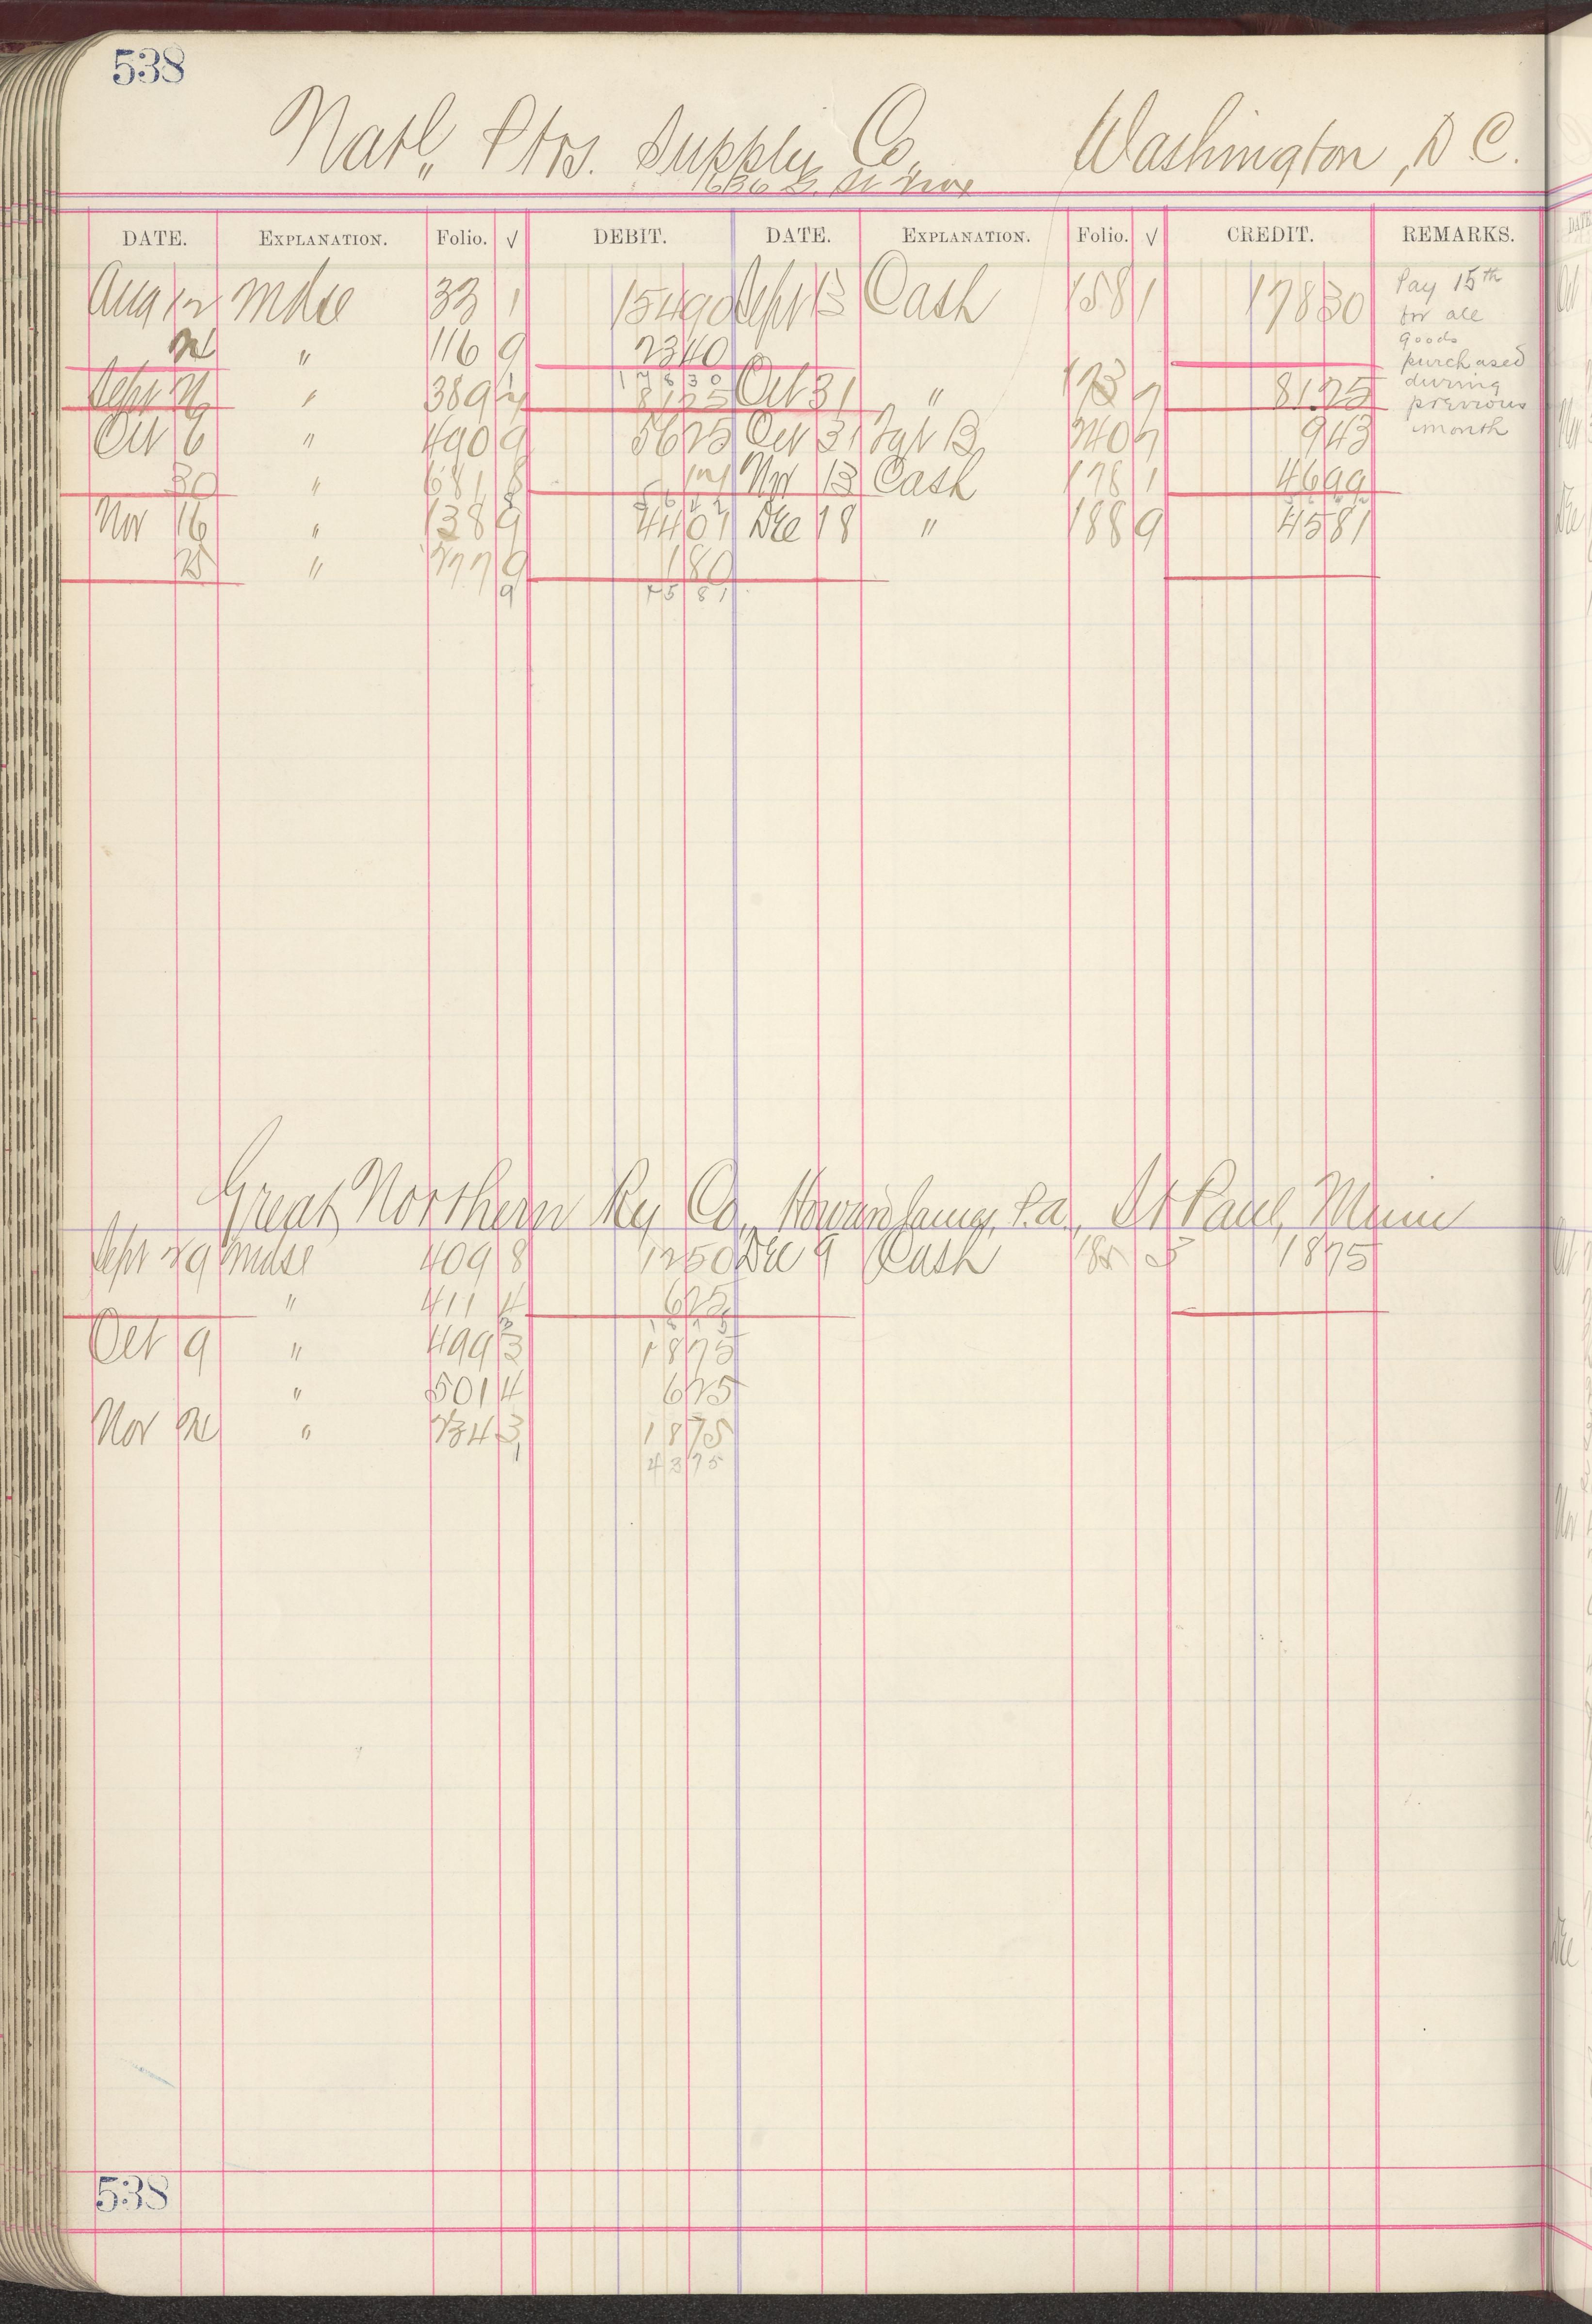 538
Natl. Ptrs. Supply Co. Washington, D C.
DATE. EXPLANATION. Folio. √ DEBIT. DATE. EXPLANATION. Folio. √ CREDIT. REMARKS.
Aug 12 Mdse 33 1 154 90 Sept 13 Cash 158 1 178 30 Pay 15th
for all
goods
" 116 9 23 40 purchased
178 30
Sept 26 " 389 81 25 Oct 31 " 173 7 81.25 during
previous
Oct 6 " 490 9 56 25 Oct 31 240 7 9 43 month
30 " 681 8 Nov 13 Cash 178 1 46 99
Nov 16 " 138 9 44 01 Dec 18 " 188 9 45 81
" 277 9 1 80
45 81
Great Northern Ry Co., Howard James, P.a., St Paul, Minn
Sept 29 Mdse 409 8 12 50 Dec 9 Cash 18 75
" 411 4 6 25
18 75
Oct 9 " 499 3 18 75
" 501 4 6 25
Nov " 234 3 18 75
43 75
538